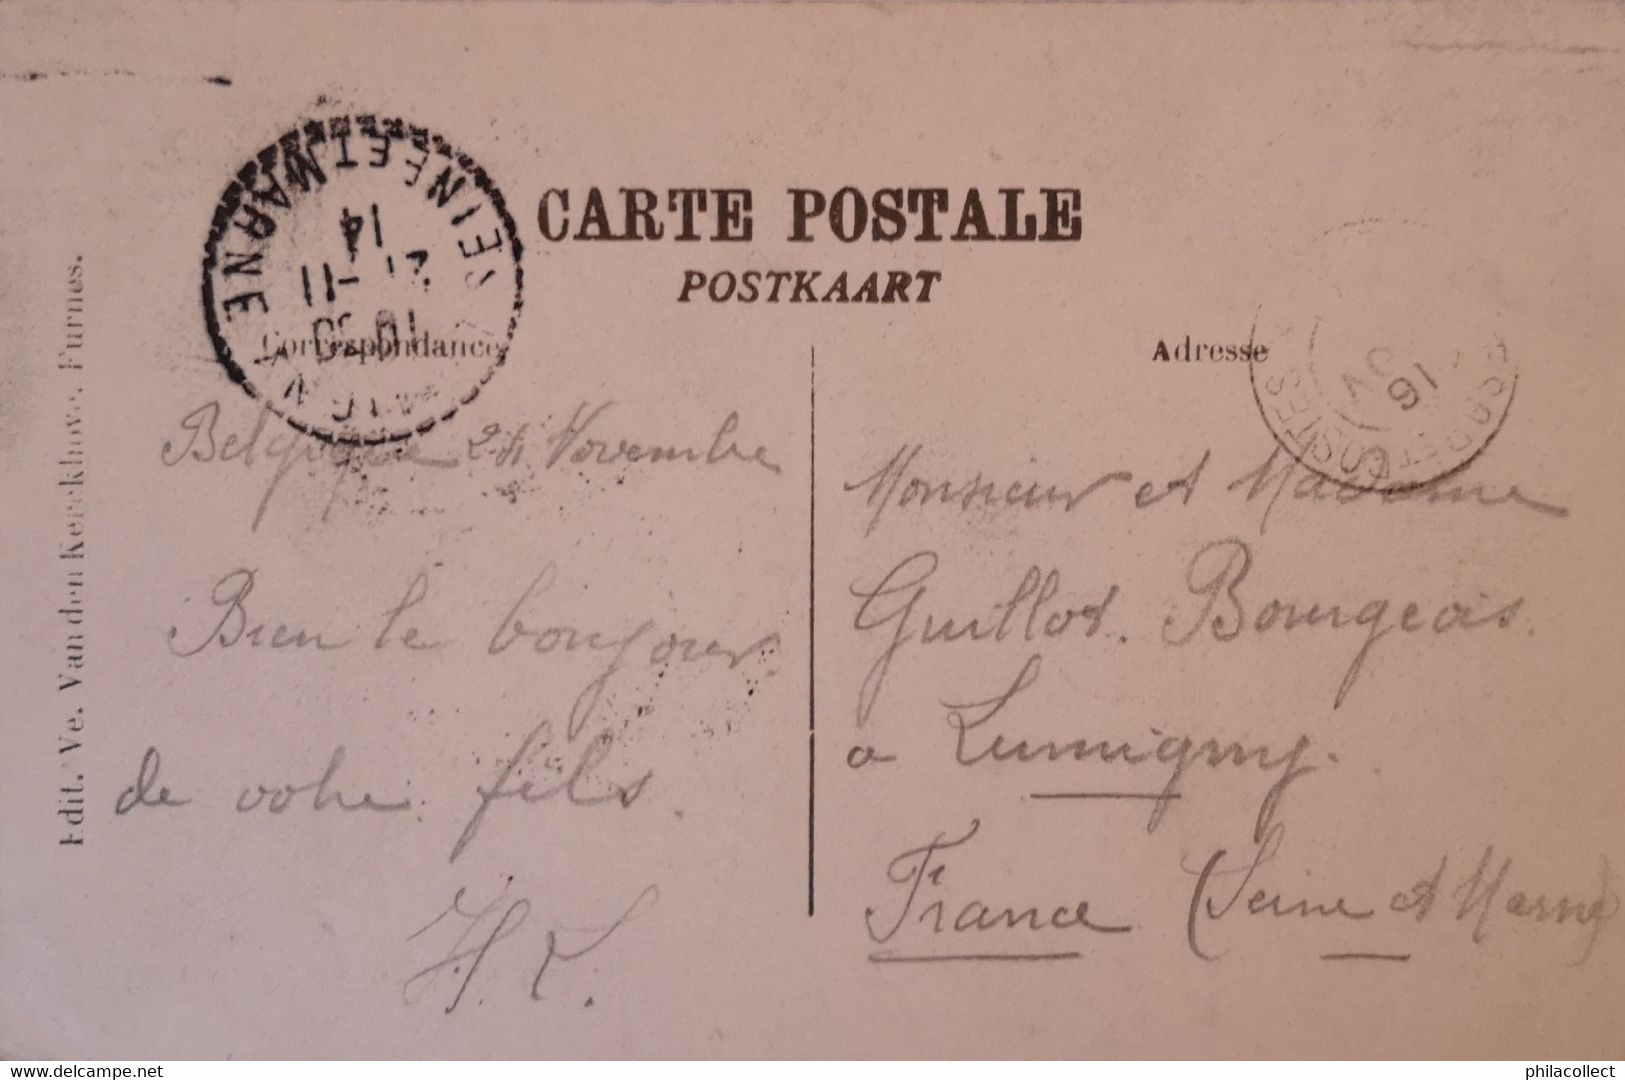 CARTE POSTALE
POSTKAART
Correspondance
Adresse
Edit. Ve. Van den Kerckhove. Furnes.
SEINE ET MARNE
14
-11
10 30
POSTES
16
Belgique 24 Novembre
Bien le bonjour
de votre fils.
H.
Monsieur et Madame
Guillot. Bourgeois.
a Lumigny.
France (Seine et Marne)
www.delcampe.net
philacollect